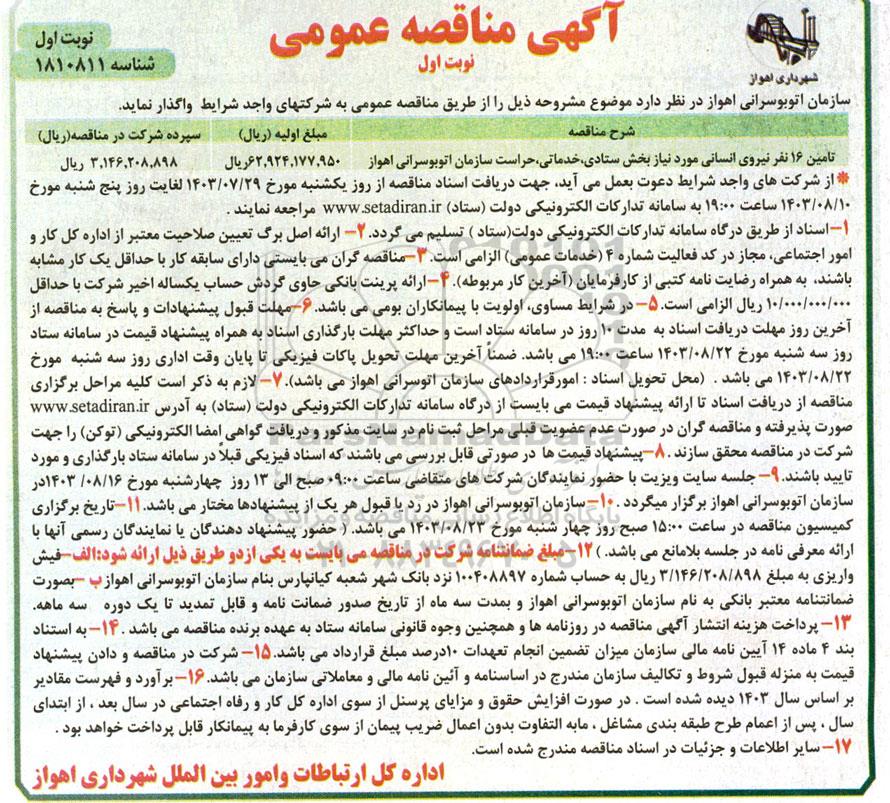 آگهی مناقصه عمومی
نوبت اول
نوبت اول
شناسه ۱۸۱۰۸۱۱
شهرداری اهواز
سازمان اتوبوسرانی اهواز در نظر دارد موضوع مشروحه ذیل را از طریق مناقصه عمومی به شرکتهای واجد شرایط واگذار نماید.
شرح مناقصه مبلغ اولیه (ریال) سپرده شرکت در مناقصه(ریال)
تامین ۱۶ نفر نیروی انسانی مورد نیاز بخش ستادی،خدماتی،حراست سازمان اتوبوسرانی اهواز ۶۲,۹۲۴,۱۷۷,۹۵۰ریال ۳,۱۴۶,۲۰۸,۸۹۸ ریال
* از شرکت های واجد شرایط دعوت بعمل می آید، جهت دریافت اسناد مناقصه از روز یکشنبه مورخ ۱۴۰۳/۰۷/۲۹ لغایت روز پنج شنبه مورخ
۱۴۰۳/۰۸/۱۰ ساعت ۱۹:۰۰ به سامانه تدارکات الکترونیکی دولت (ستاد) www.setadiran.ir مراجعه نمایند .
۱–اسناد از طریق درگاه سامانه تدارکات الکترونیکی دولت(ستاد ) تسلیم می گردد. ۲– ارائه اصل برگ تعیین صلاحیت معتبر از اداره کل کار و
امور اجتماعی، مجاز در کد فعالیت شماره ۴ (خدمات عمومی) الزامی است. ۳–مناقصه گران می بایستی دارای سابقه کار با حداقل یک کار مشابه
باشند، به همراه رضایت نامه کتبی از کارفرمایان (آخرین کار مربوطه). ۴–ارائه پرینت بانکی حاوی گردش حساب یکساله اخیر شرکت با حداقل
۱۰/۰۰۰/۰۰۰/۰۰۰ ریال الزامی است. ۵– در شرایط مساوی، اولویت با پیمانکاران بومی می باشد. ۶–مهلت قبول پیشنهادات و پاسخ به مناقصه از
آخرین روز مهلت دریافت اسناد به مدت ۱۰ روز در سامانه ستاد است و حداکثر مهلت بارگذاری اسناد به همراه پیشنهاد قیمت در سامانه ستاد
روز سه شنبه مورخ ۱۴۰۳/۰۸/۲۲ ساعت ۱۹:۰۰ می باشد. ضمناً آخرین مهلت تحویل پاکات فیزیکی تا پایان وقت اداری روز سه شنبه مورخ
۱۴۰۳/۰۸/۲۲ می باشد . (محل تحویل اسناد : امورقراردادهای سازمان اتوسرانی اهواز می باشد). ۷–لازم به ذکر است کلیه مراحل برگزاری
مناقصه از دریافت اسناد تا ارائه پیشنهاد قیمت می بایست از درگاه سامانه تدارکات الکترونیکی دولت (ستاد) به آدرس www.setadiran.ir
صورت پذیرفته و مناقصه گران در صورت عدم عضویت قبلی مراحل ثبت نام در سایت مذکور و دریافت گواهی امضا الکترونیکی (توکن) را جهت
شرکت در مناقصه محقق سازند . ۸–پیشنهاد قیمت ها در صورتی قابل بررسی می باشند که اسناد فیزیکی قبلاً در سامانه ستاد بارگذاری و مورد
تایید باشند. ۹– جلسه سایت ویزیت با حضور نمایندگان شرکت های متقاضی ساعت ۰۹:۰۰ صبح الی ۱۳ روز چهارشنبه مورخ ۰۸/۱۶/ ۱۴۰۳در
سازمان اتوبوسرانی اهواز برگزار میگردد .۱۰–سازمان اتوبوسرانی اهواز در رد یا قبول هر یک از پیشنهادها مختار می باشد.۱۱–تاریخ برگزاری
کمیسیون مناقصه در ساعت ۱۵:۰۰ صبح روز چهار شنبه مورخ ۱۴۰۳/۰۸/۲۳ می باشد. ( حضور پیشنهاد دهندگان یا نمایندگان رسمی آنها با
ارائه معرفی نامه در جلسه بلامانع می باشد. ) ۱۲–مبلغ ضمانتنامه شرکت در مناقصه می بایست به یکی ازدو طریق ذیل ارائه شود:الف–فیش
واریزی به مبلغ ۳/۱۴۶/۲۰۸/۸۹۸ ریال به حساب شماره ۱۰۰۴۰۸۸۹۷ نزد بانک شهر شعبه کیانپارس بنام سازمان اتوبوسرانی اهوازب –بصورت
ضمانتنامه معتبر بانکی به نام سازمان اتوبوسرانی اهواز و بمدت سه ماه از تاریخ صدور ضمانت نامه و قابل تمدید تا یک دوره سه ماهه.
۱۳– پرداخت هزینه انتشار آگهی مناقصه در روزنامه ها و همچنین وجوه قانونی سامانه ستاد به عهده برنده مناقصه می باشد . ۱۴– به استناد
بند ۴ ماده ۱۴ آیین نامه مالی سازمان میزان تضمین انجام تعهدات ۱۰درصد مبلغ قرارداد می باشد. ۱۵– شرکت در مناقصه و دادن پیشنهاد
قیمت به منزله قبول شروط و تکالیف سازمان مندرج در اساسنامه و آئین نامه مالی و معاملاتی سازمان می باشد. ۱۶– برآورد و فهرست مقادیر
بر اساس سال ۱۴۰۳ دیده شده است . در صورت افزایش حقوق و مزایای پرسنل از سوی اداره کل کار و رفاه اجتماعی در سال بعد ، از ابتدای
سال ، پس از اعمام طرح طبقه بندی مشاغل ، مابه التفاوت بدون اعمال ضریب پیمان از سوی کارفرما به پیمانکار قابل پرداخت خواهد بود .
۱۷– سایر اطلاعات و جزئیات در اسناد مناقصه مندرج شده است.
اداره کل ارتباطات وامور بین الملل شهرداری اهواز